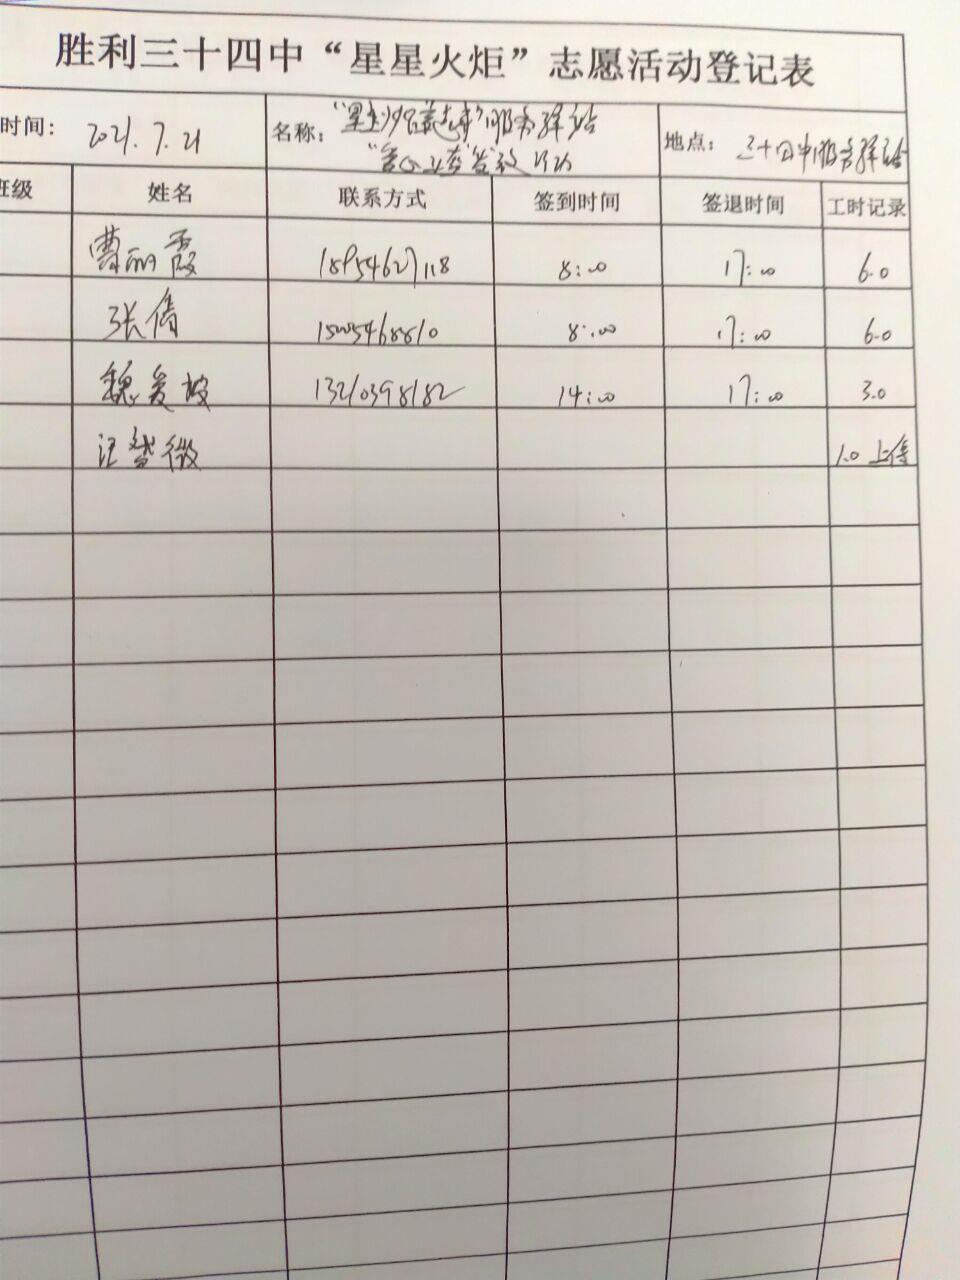 胜利三十四中“星星火炬”志愿活动登记表
时间： 2021.7.21 名称： 服务驿站 地点： 三十四中服务驿站
发放活动
班级 姓名 联系方式 签到时间 签退时间 工时记录
曹丽霞 18954627118 8:00 17:00 6.0
张倩 15005468810 8:00 17:00 6.0
魏爱 13210398182 14:00 17:00 3.0
汪 微 1.0 上传